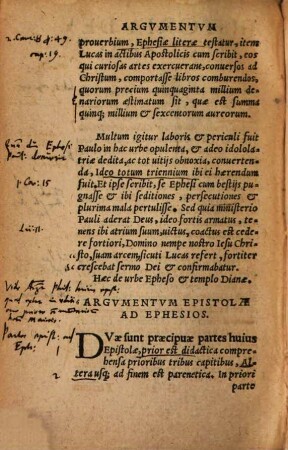 ARGVMENTVM
prouerbium, Ephesiæ literæ testatur, item
Lucas in actibus Apostolicis cum scribit, eos
qui curiosas artes exercuerant, conuersos ad
Christum, comportasse libros comburendos,
quorum precium quinquaginta millium de-
nariorum æstimatum sit, quæ est summa
quinq; millium & sexcentorum aureorum.
Multum igitur laboris & periculi fuit
Paulo in hac urbe opulenta, & adeo idolola-
triæ dedita, ac tot uitijs obnoxia, conuerten-
da, Ideo totum triennium ibi ei hærendum
fuit. Et ipse scribit, se Ephesi cum bestijs pu-
gnasse & ibi seditiones, persecutiones &
plurima mala pertulisse. Sed quia ministerio
Pauli aderat Deus, ideo fortis armatus, te-
nens ibi atrium suum, uictus, coactus est cede
re fortiori, Domino nempe nostro Iesu Chri-
sto, suam arcem, sicuti Lucas refert, fortiter
crescebat sermo Dei & confirmabatur.
Hæc de urbe Epheso & templo Dianæ.
ARGVMENTVM EPISTOLÆ
AD EPHESIOS.
DVæ sunt præcipuæ partes huius
Epistolæ, prior est didactica compre-
hensa prioribus tribus capitibus, Al-
tera usq; ad finem est parenetica. In priori
parte